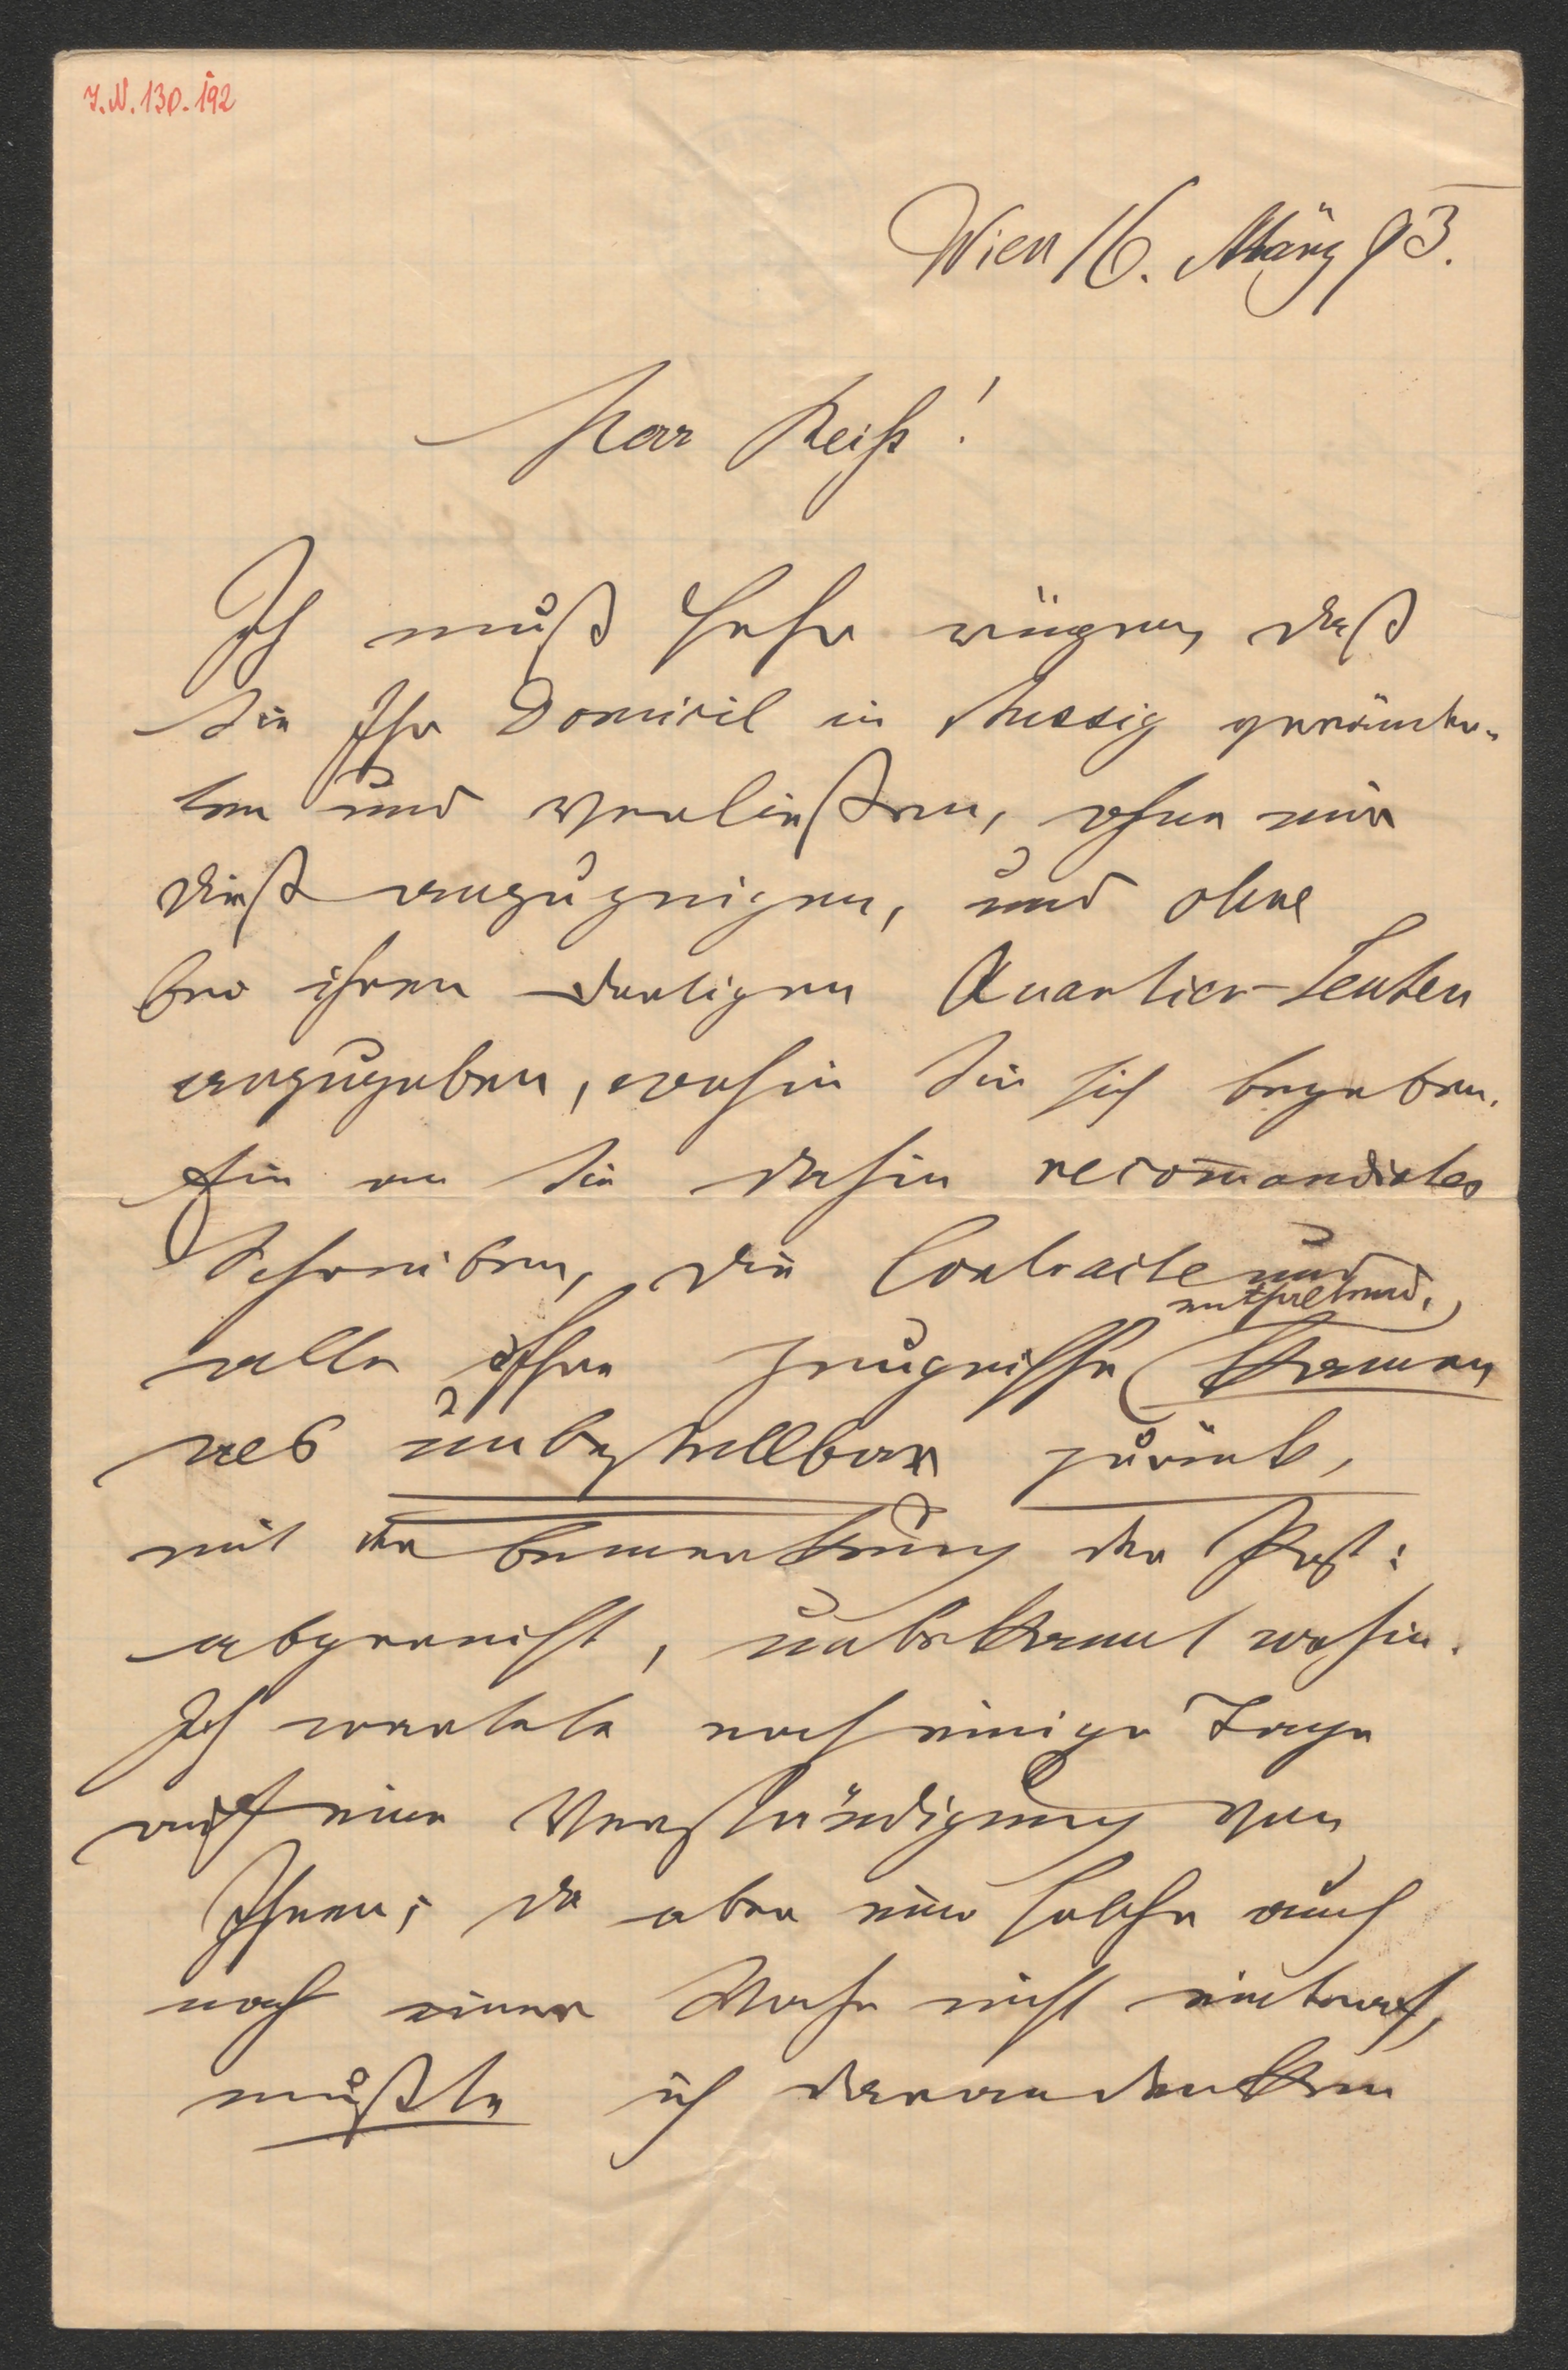 I.N. 130.192
Wien 16. März 93.
Herr Reiß!
Ich muß sehr rügen, daß
Sie Ihr Domicil in Aussig
und verließen, ohne mir
dieß anzuzeigen, und ohne
bei ihren dortigen Quartier-Leuten
anzugeben, wohin Sie sich begeben.
Ein an Sie dahin recom̄andirtes
Schreiben, die Contracte und
alle Ihre Zeugnisse (enthaltend,) kam
als unbestellbar zurück,
mit der Bemerkung der Post:
abgereist, unbekannt wohin.
Ich wartete noch einige Tage
auf eine Verständigung von
Ihnen; da aber eine solche auch
nach einer Woche nicht eintraf,
mußte ich daran denken